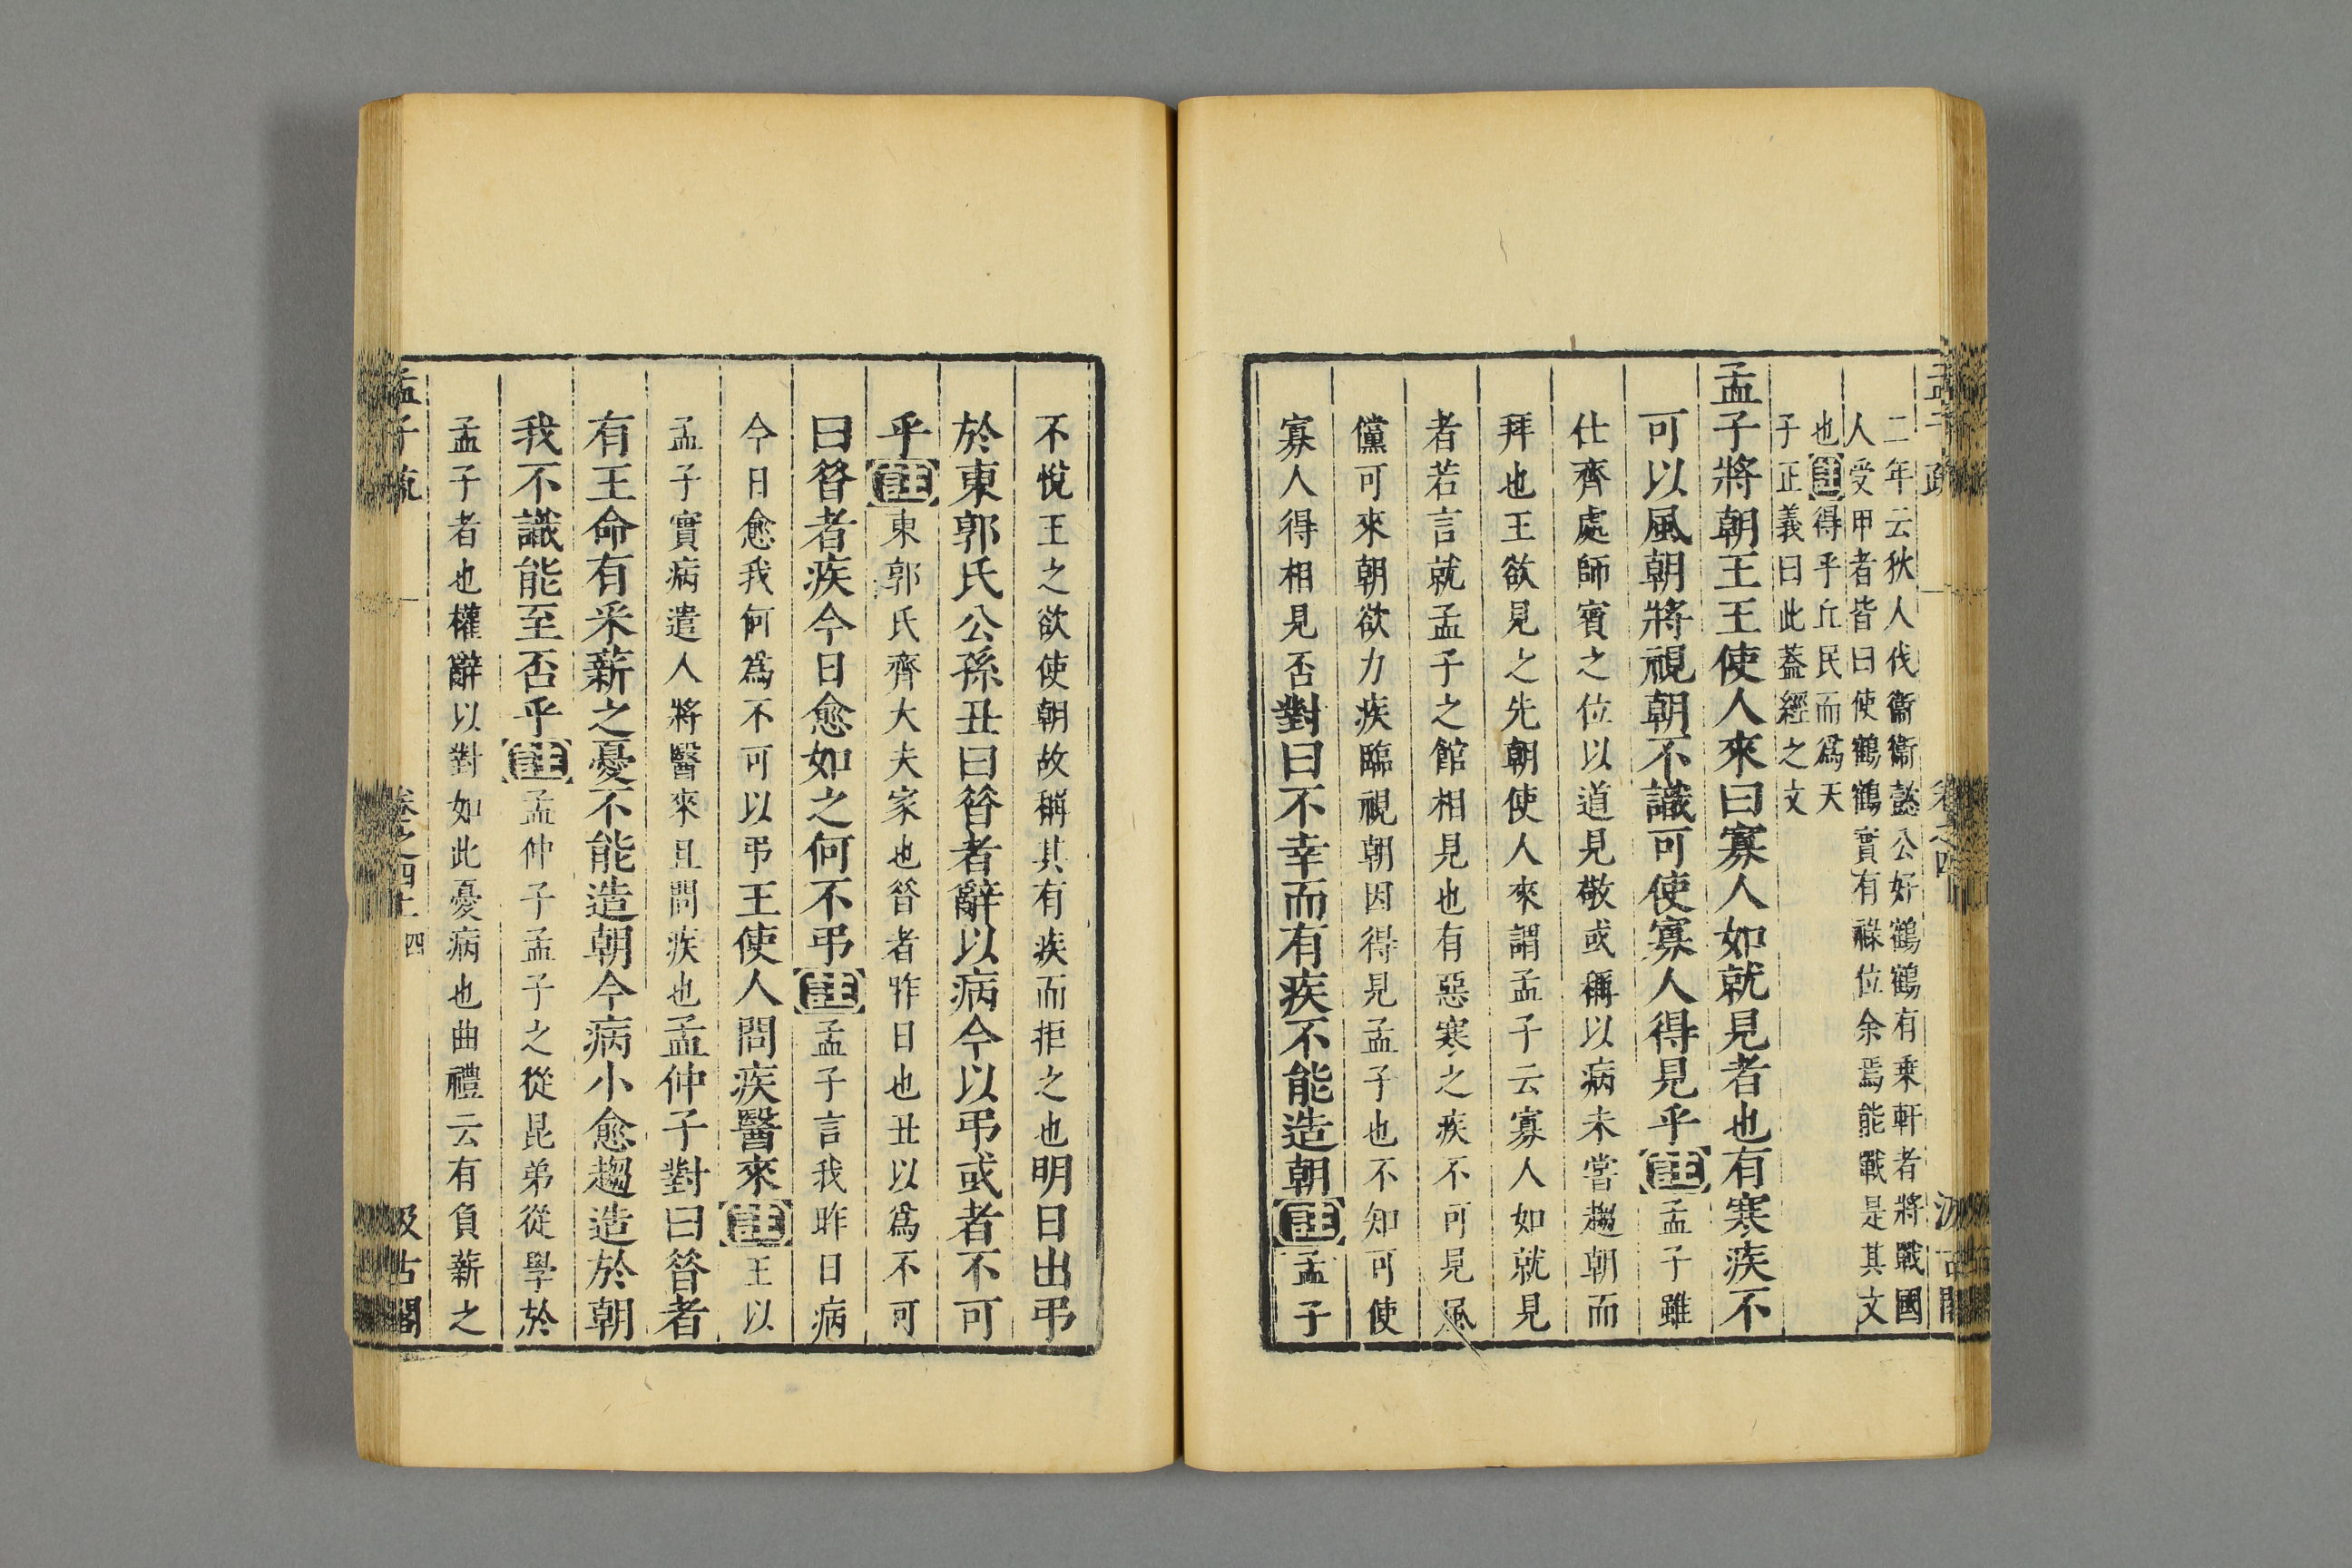 孟子疏
二年云狄人伐衞衞懿公好鶴鶴有乗軒者將戰國
人受甲者皆曰使鶴鶴實有祿位余焉能戰是其文
也註得乎丘民而爲天
子正義曰此葢經之文
孟子將朝王王使人來曰寡人如就見者也有寒疾不
可以風朝將視朝不識可使寡人得見乎註孟子雖
仕齊處師賓之位以道見敬或稱以病未嘗趨朝而
拜也王欲見之先朝使人來謂孟子云寡人如就見
者若言就孟子之館相見也有惡寒之疾不可見風
儻可來朝欲力疾臨視朝因得見孟子也不知可使
寡人得相見否對曰不幸而有疾不能造朝註孟子
不悅王之欲使朝故稱其有疾而拒之也明日出弔
於東郭氏公孫丑曰昝者辭以病今以弔或者不可
乎註東郭氏齊大夫家也昝者昨日也丑以爲不可
曰昝者疾今日愈如之何不弔註孟子言我昨日病
今日愈我何爲不可以弔王使人問疾醫來註王以
孟子實病遣人將醫來且問疾也孟仲子對曰昝者
有王命有采薪之憂不能造朝今病小愈趨造於朝
我不識能至否乎註孟仲子孟子之從昆弟從學於
孟子者也權辭以對如此憂病也曲禮云有負薪之
孟子疏 卷之四上 四 汲古閣